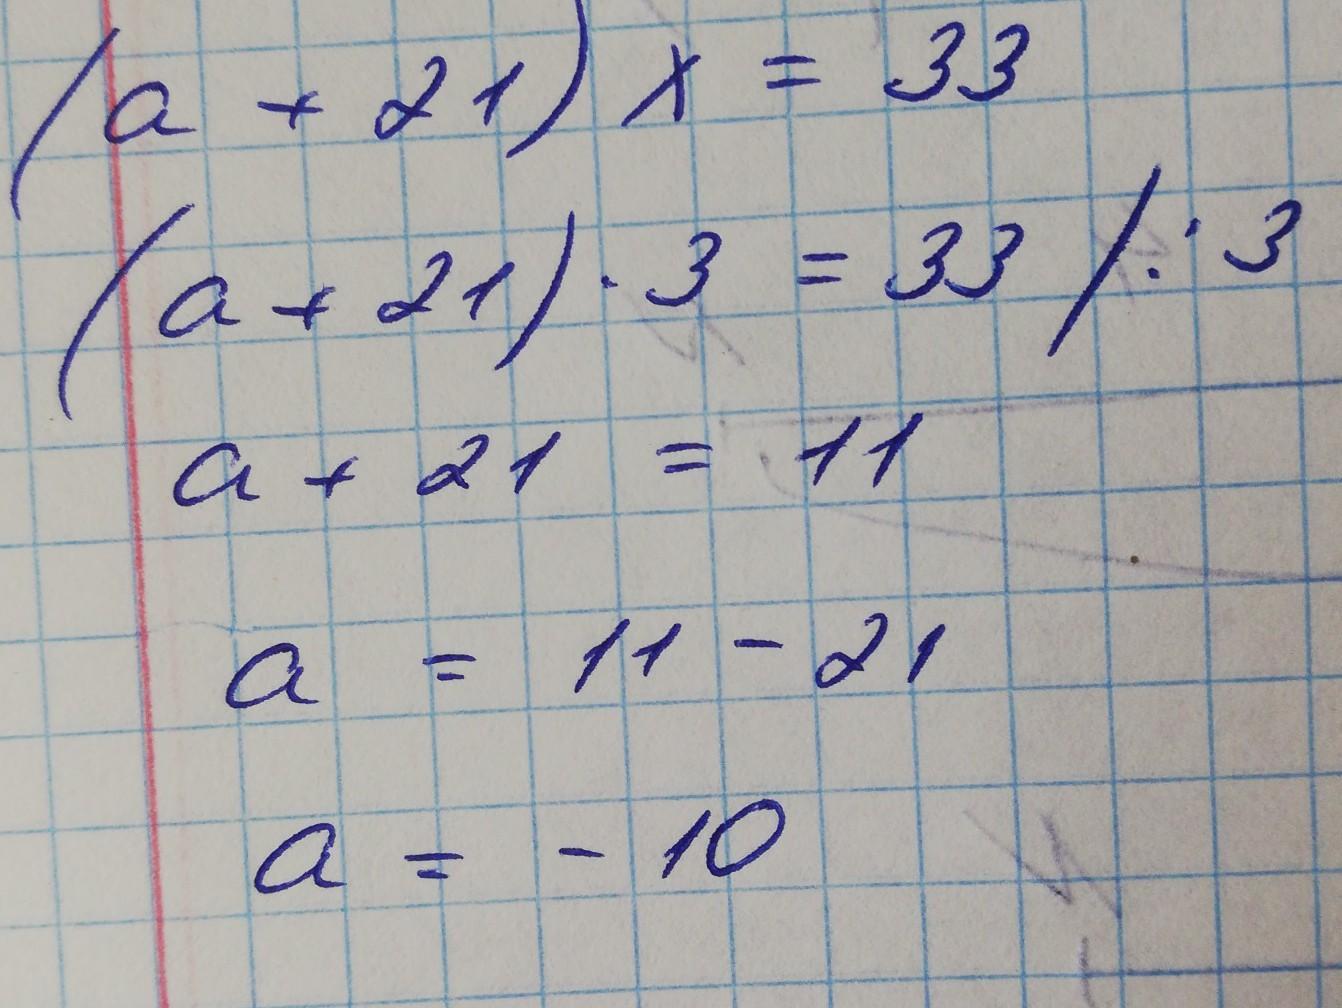 (a + 21) x = 33
(a + 21) · 3 = 33 / : 3
a + 21 = 11
a = 11 - 21
a = - 10